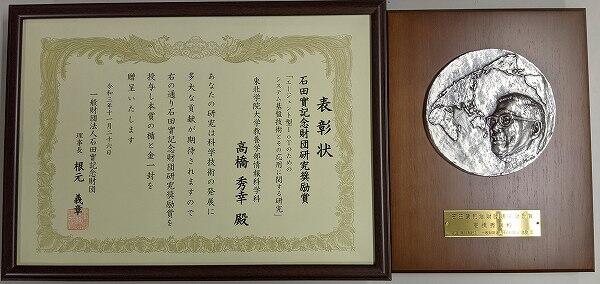 表彰状
石田實記念財団研究奨励賞
「エージェント型IoTのための
システム基盤技術とその応用に関する研究」
東北学院大学教養学部情報科学科
高橋 秀幸 殿
あなたの研究は科学技術の発展に
多大な貢献が期待されますので
右の通り石田實記念財団研究奨励賞を
授与し本賞の楯と金一封を
贈呈いたします
令和三年十一月二十六日
一般財団法人石田實記念財団
理事長 根元 義章